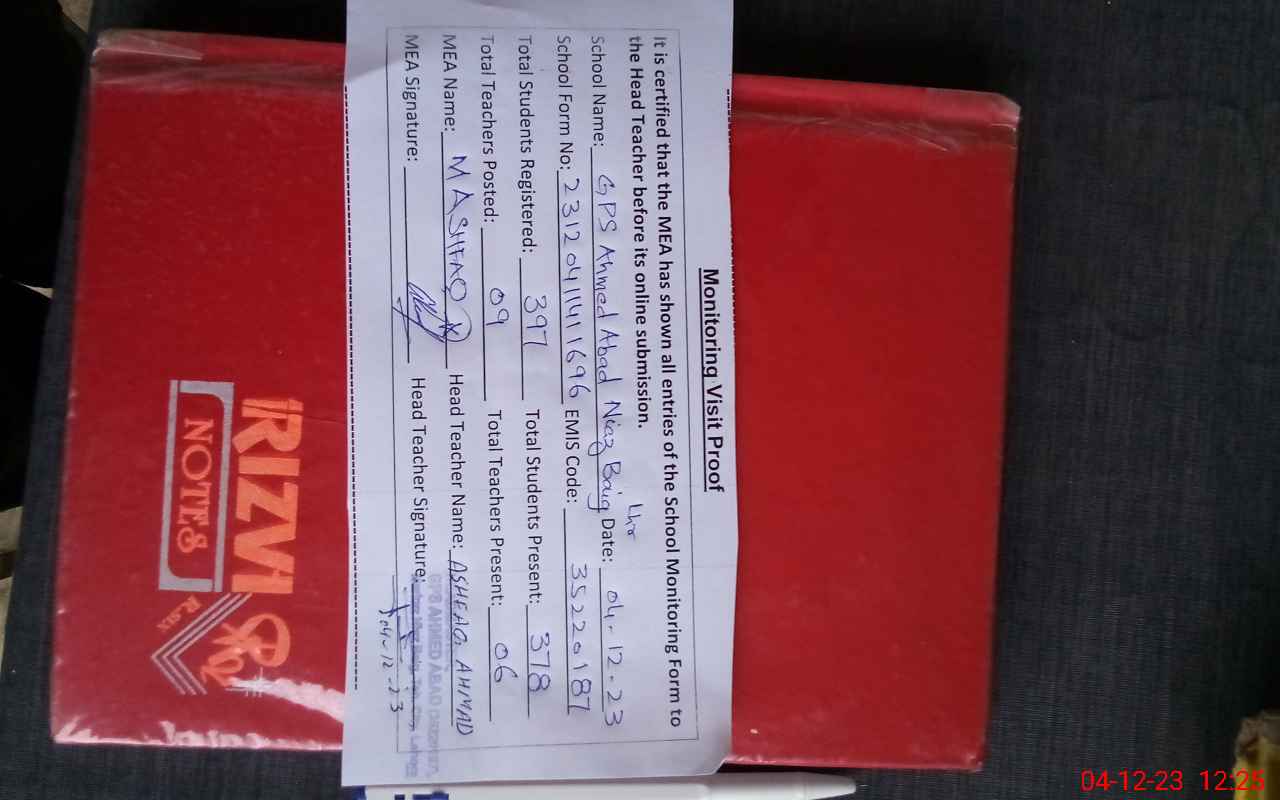 Monitoring Visit Proof
It is certified that the MEA has shown all entries of the School Monitoring Form to
the Head Teacher before its online submission.
Lhr
School Name: GPS Ahmed Abad Niaz Baig Date: 04-12-23
School Form No: 23120411411696 EMIS Code: 35220187
Total Students Registered: 397 Total Students Present: 378
Total Teachers Posted: 09 Total Teachers Present: 06
MEA Name: M ASHFAQ Head Teacher Name: ASHFAQ AHMAD
MEA Signature: Head Teacher Signature:
GPS AHMED ABAD
Lahore
04-12-23
RIZVI
NOTES
04-12-23 12:25